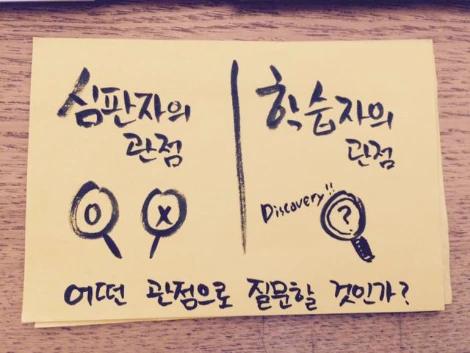 심판자의
관점
O X
학습자의
관점
Discovery!!
?
어떤 관점으로 질문할 것인가?